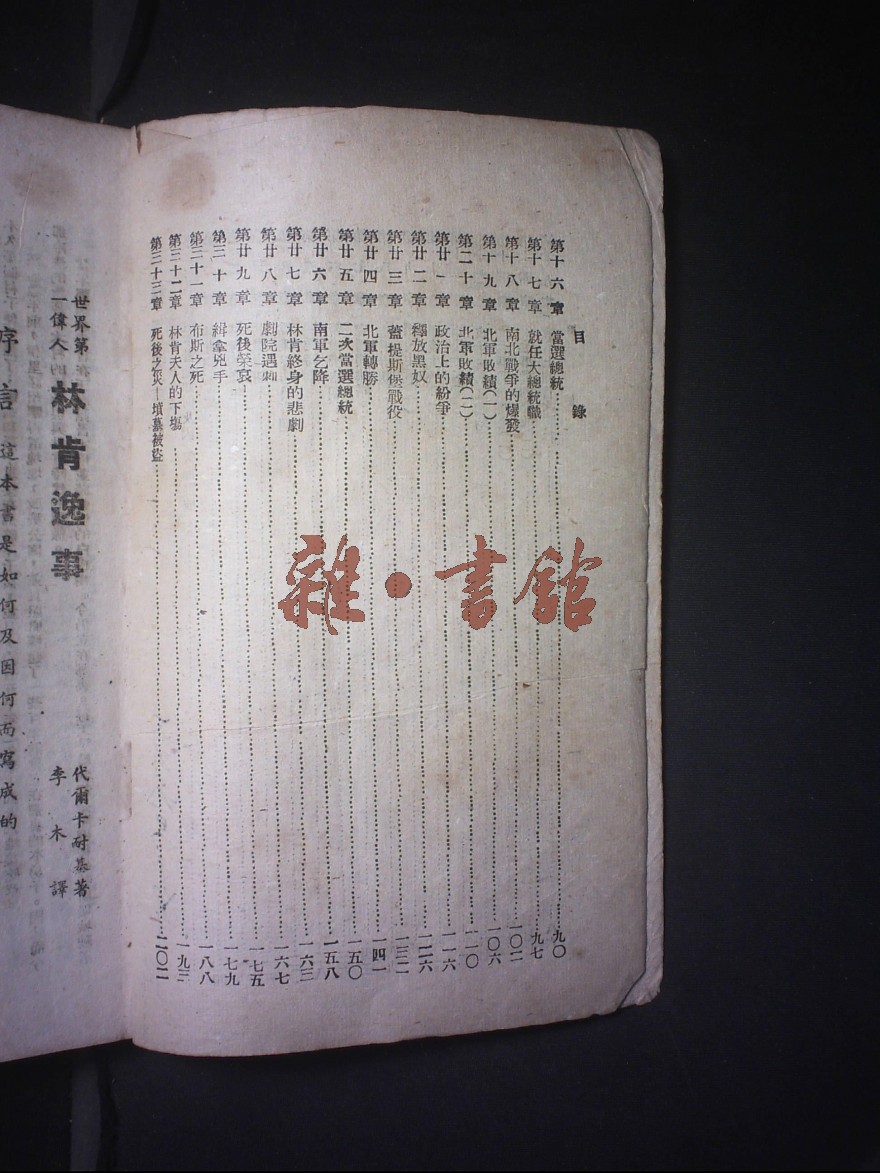 目錄
第十六章 當選總統……九〇
第十七章 就任大總統職……九七
第十八章 南北戰爭的爆發……一〇二
第十九章 北軍敗績（一）……一〇六
第二十章 北軍敗績（二）……一一〇
第廿一章 政治上的紛爭……一一六
第廿二章 釋放黑奴……一二六
第廿三章 蓋提斯堡戰役……一三二
第廿四章 北軍轉勝……一四一
第廿五章 二次當選總統……一五〇
第廿六章 南軍乞降……一五八
第廿七章 林肯終身的悲劇……一六三
第廿八章 劇院遇刺……一六七
第廿九章 死後榮哀……一七五
第三十章 緝拿兇手……一七九
第三十一章 布斯之死……一八八
第三十二章 林肯夫人的下塲……一九三
第三十三章 死後之災—墳墓被盜……二〇二
雜·書館
世界第
一偉人的
林肯逸事
代爾卡耐基著
李木譯
序言 這本書是如何及因何而寫成的